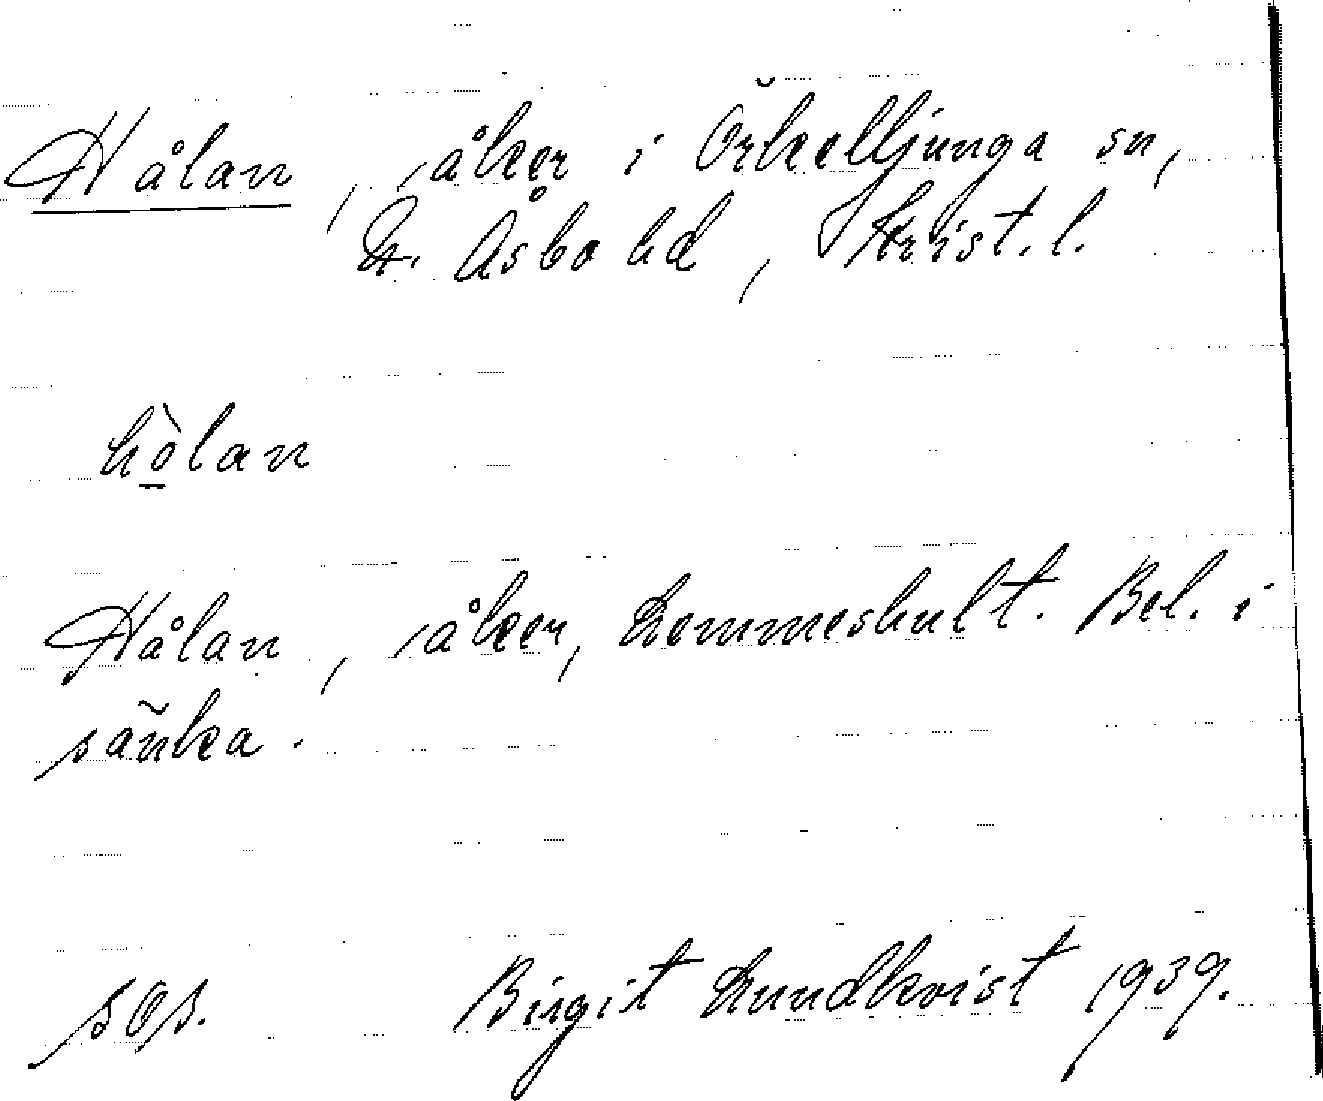 Hålan, åker i Örkelljunga sn,
N. Åsbo hd, Krist. l.
hòlan
Hålan, åker, Lemmeshult. Bel. i
sänka.
sOs. Birgit Lundkvist 1939.